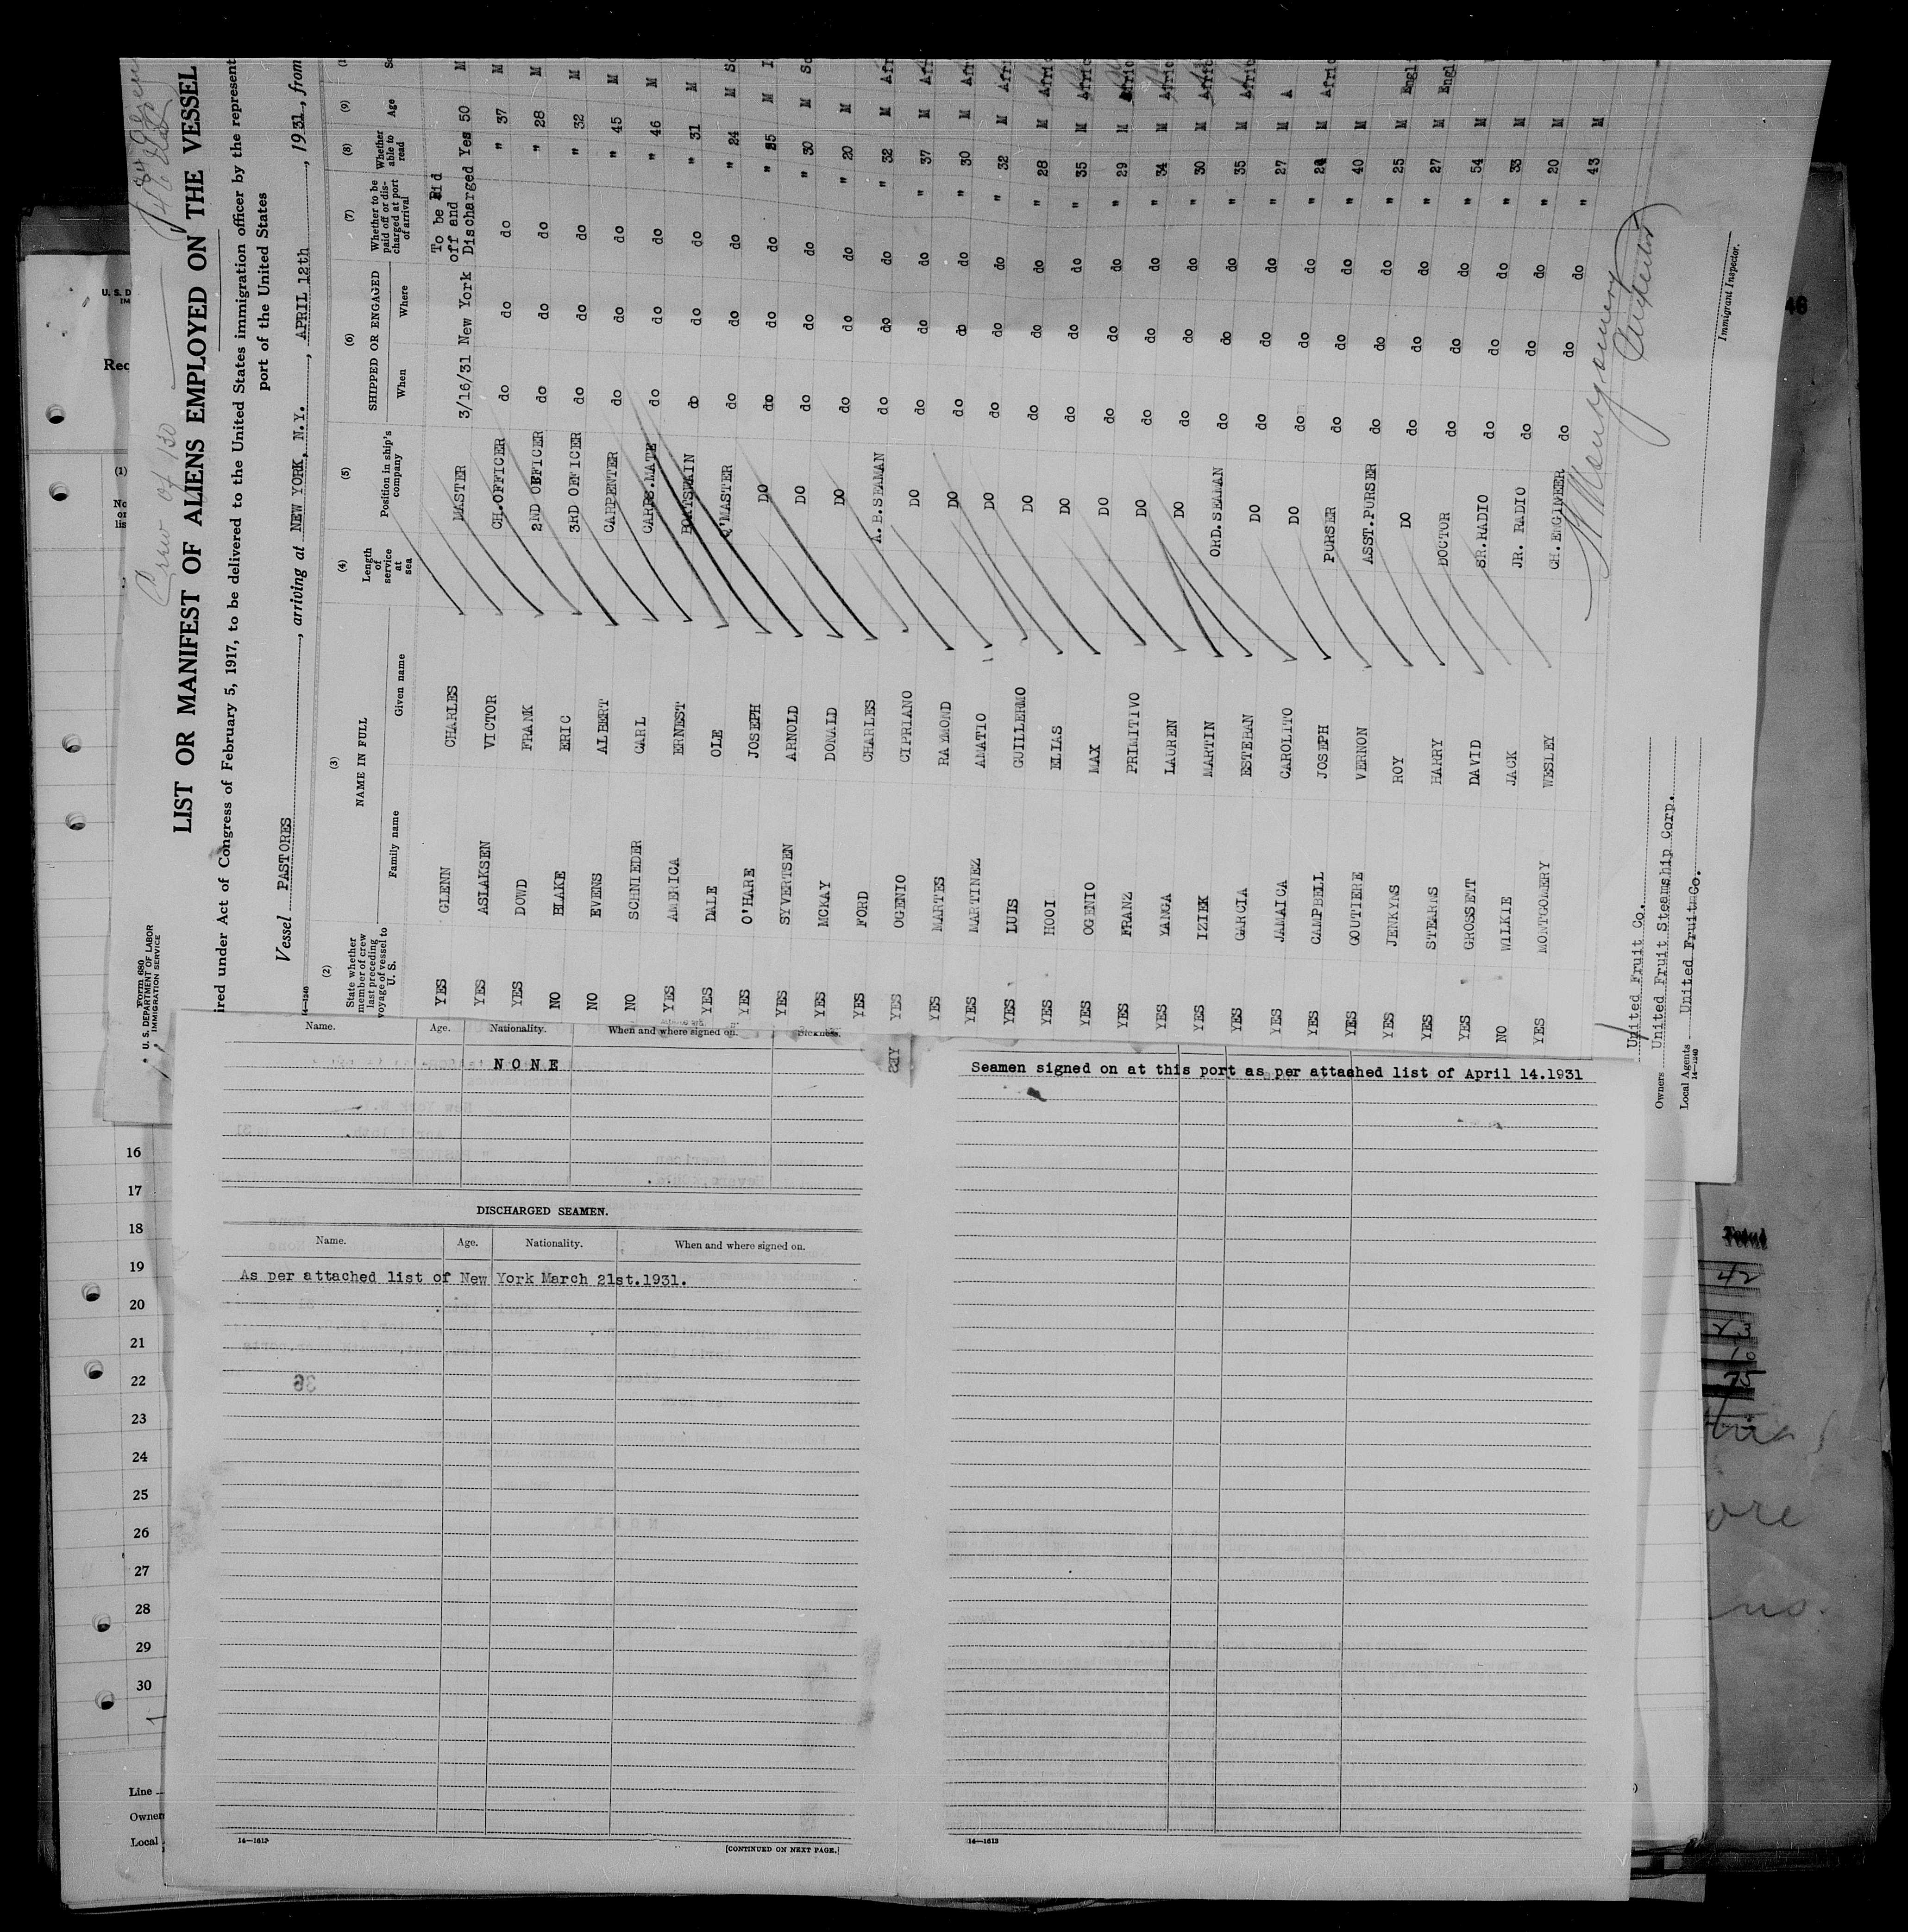 Crew of 130
Form 680
U. S. DEPARTMENT OF LABOR
IMMIGRATION SERVICE
LIST OR MANIFEST OF ALIENS EMPLOYED ON THE VESSEL
ired under Act of Congress of February 5, 1917, to be delivered to the United States immigration officer by the represent
port of the United States
Vessel PASTORES, arriving at NEW YORK, N.Y., APRIL 12th, 1931, from
14—1240
(2) (3) (4) (5) (6) (7) (8) (9)
State whether member of crew last preceding voyage of vessel to U. S. NAME IN FULL Family name Given name Length of service at sea Position in ship's company SHIPPED OR ENGAGED When Where Whether to be paid off or discharged at port of arrival Whether able to read Age
To be Pid off and
YES GLENN CHARLES MASTER 3/16/31 New York Discharged Yes 50 M
YES ASLAKSEN VICTOR CH.OFFICER do do do " 37 M
YES DOWD FRANK 2ND OFFICER do do do " 28 M
NO BLAKE ERIC 3RD OFFICER do do do " 32 M
NO EVENS ALBERT CARPENTER do do do " 45 M
NO SCHNIEDER CARL CARPS.MATE do do do " 46 M
YES AMERICA ERNEST BOATSWAIN do do do " 31 M
YES DALE OLE Q'MASTER do do do " 24 M Sc
YES O'HARE JOSEPH DO do do do " 25 M I
YES SYVERTSEN ARNOLD DO do do do " 30 M Sc
YES MCKAY DONALD DO do do do " 20 M
YES FORD CHARLES A.B.SEAMAN do do do " 32 M Afr
YES OGENIO CIPRIANO DO do do do " 37 M Afr
YES MARTES RAYMOND DO do do do " 30 M Afr
YES MARTINEZ AMATIO DO do do do " 32 M Afri
YES LUIS GUILLERMO DO do do do " 28 M Afric
YES HOOI ELIAS DO do do do " 35 M Afric
YES OGENIO MAX DO do do do " 29 M Afric
YES FRANZ PRIMITIVO DO do do do " 34 M Afric
YES YANGA LAUREN DO do do do " 30 M Afric
YES IZIEK MARTIN ORD.SEAMAN do do do " 35 M Afric
YES GARCIA ESTEBAN DO do do do " 27 M A
YES JAMAICA CAROLITO DO do do do " M Afric
YES CAMPBELL JOSEPH PURSER do do do " 40 M
YES GOUTIERE VERNON ASST.PURSER do do do " 25 M Engl
YES JENKYNS ROY DO do do do " 27 M Engl
YES STEARNS HARRY DOCTOR do do do " 54 M
YES GROSSETT DAVID SR.RADIO do do do " 33 M
NO WILKIE JACK JR. RADIO do do do " 20 M
YES MONTGOMERY WESLEY CH.ENGINEER do do do " 43 M
United Fruit Co.
Owners United Fruit Steamship Corp.
Local Agents United FruitmCo.
14—1240
Immigrant Inspector.
Name. Age. Nationality. When and where signed on. Sickness.
NONE
DISCHARGED SEAMEN.
Name. Age. Nationality. When and where signed on.
As per attached list of New York March 21st.1931.
14—1613
[CONTINUED ON NEXT PAGE.]
YES
Seamen signed on at this port as per attached list of April 14.1931
14—1613
U. S. D
IM
Rec
(1)
No
16
17
18
19
20
21
22
23
24
25
26
27
28
29
30
Line
Owner
Local
46
Total
42